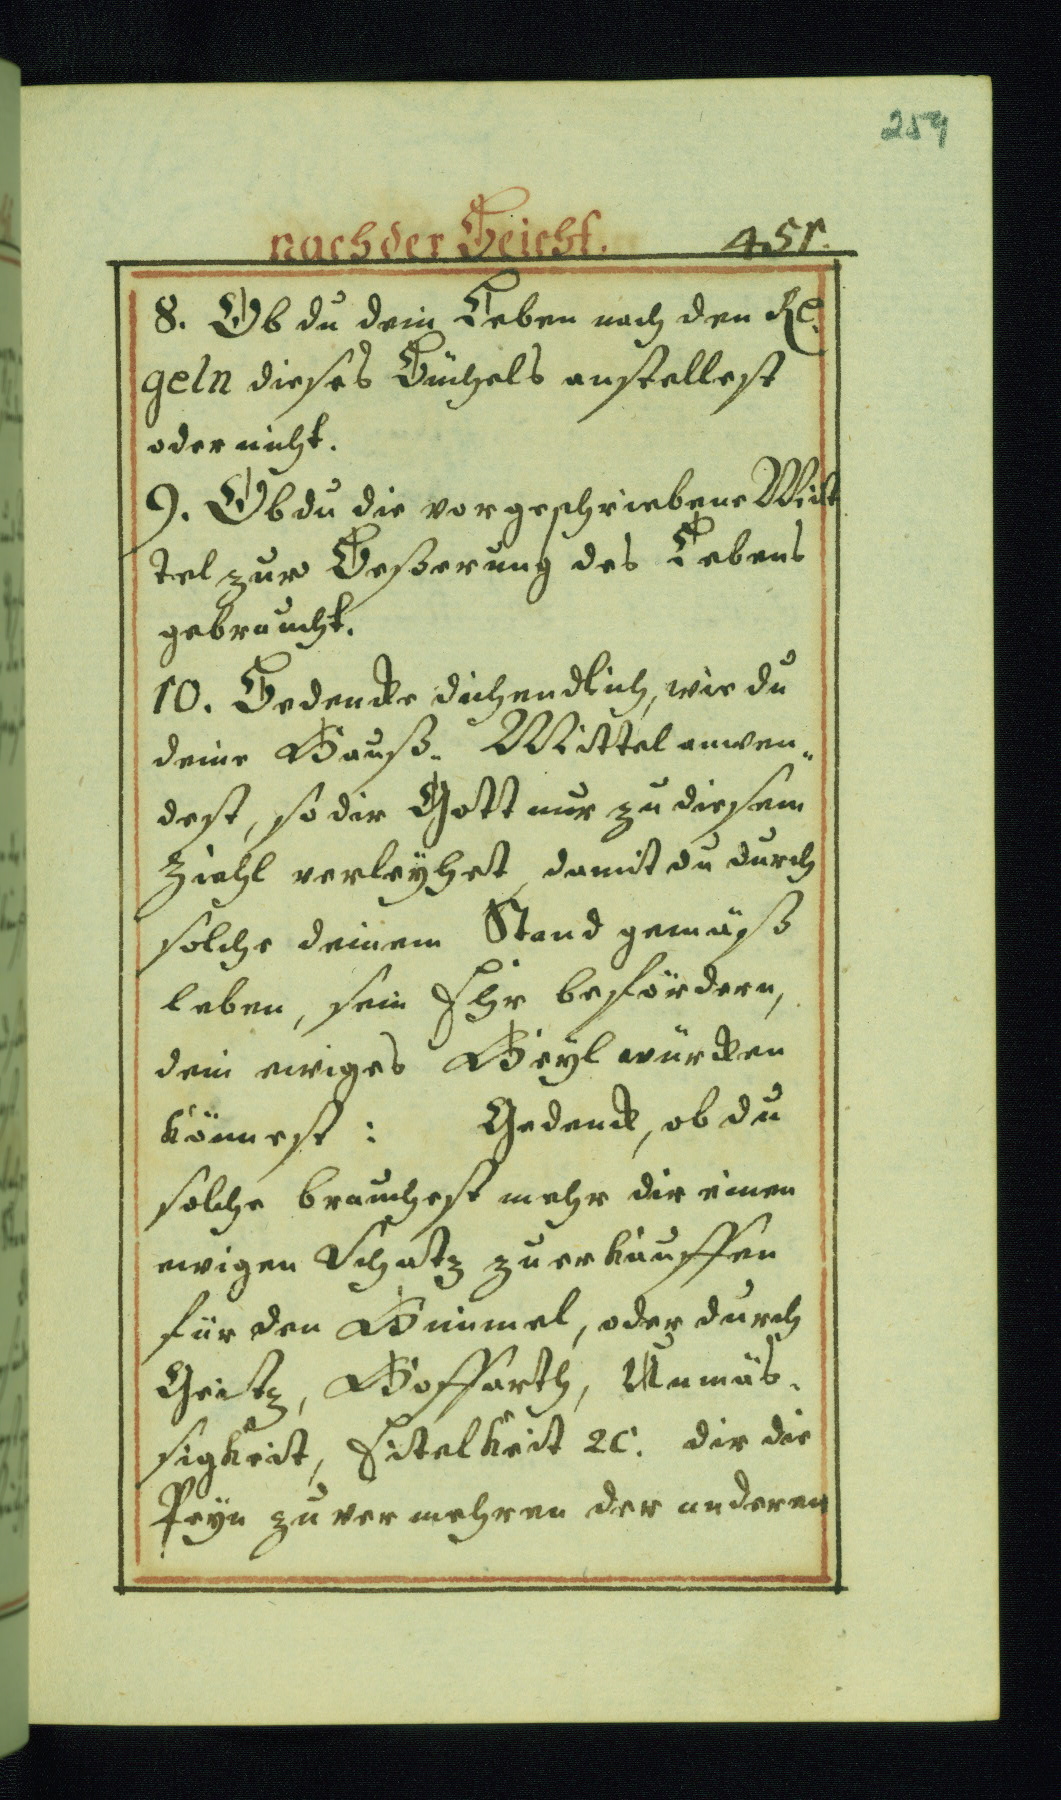 259
nach der Beicht. 451.
8. Ob du dein Leben nach den Re-
geln dieses Büchels anstellest
oder nicht.
9. Ob du die vorgeschriebene Mit
tel zur Beßerung des Lebens
gebraucht.
10. Bedencke dich endlich, wie du
deine Hauß- Mittel anwen-
dest, so dir Gott nur zu diesem
Ziehl verleÿhet, damit du durch
solche deinem Stand gemäß
leben, sein Ehr befördern,
dein ewiges Heÿl würcken
könnest: Gedenck, ob du
solche brauchest mehr dir einen
ewigen Schatz zu erkauffen
für den Himmel, oder durch
Geitz, Hoffarth, Unmäs-
sigkeit, Eitelkeit 2c. dir die
Peÿn zu vermehren der anderen